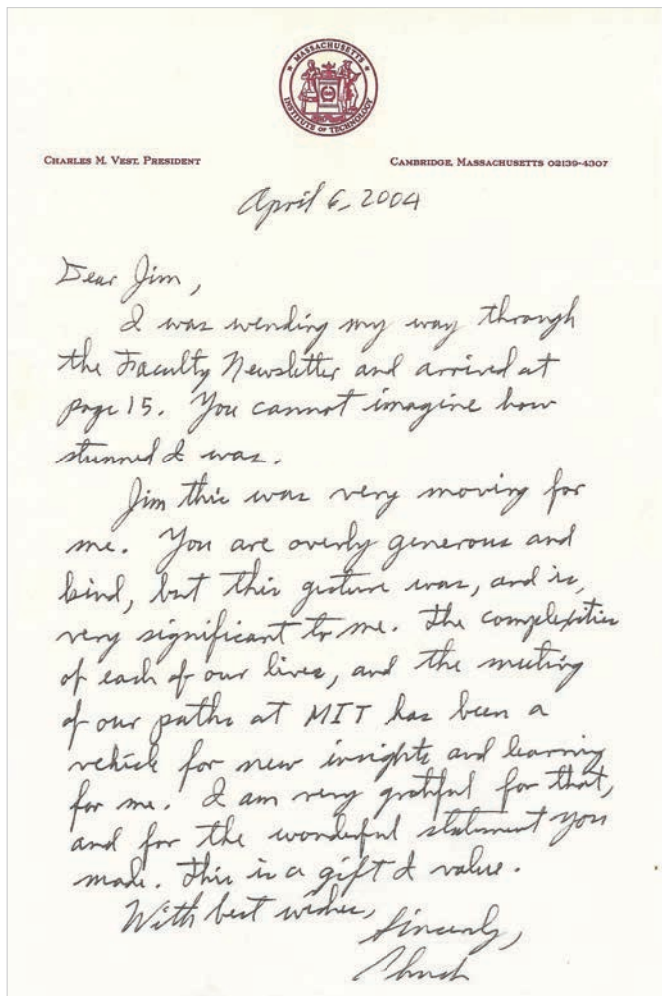 MASSACHUSETTS
INSTITUTE OF TECHNOLOGY
CHARLES M. VEST, PRESIDENT
CAMBRIDGE, MASSACHUSETTS 02139-4307
April 6, 2004
Dear Jim,
I was wending my way through
the Faculty Newsletter and arrived at
page 15. You cannot imagine how
stunned I was.
Jim this was very moving for
me. You are overly generous and
kind, but this gesture was, and is,
very significant to me. The complexities
of each of our lives, and the meeting
of our paths at MIT has been a
vehicle for new insights and learning
for me. I am very grateful for that,
and for the wonderful statement you
made. This is a gift I value.
With best wishes,
Sincerely,
Chuck